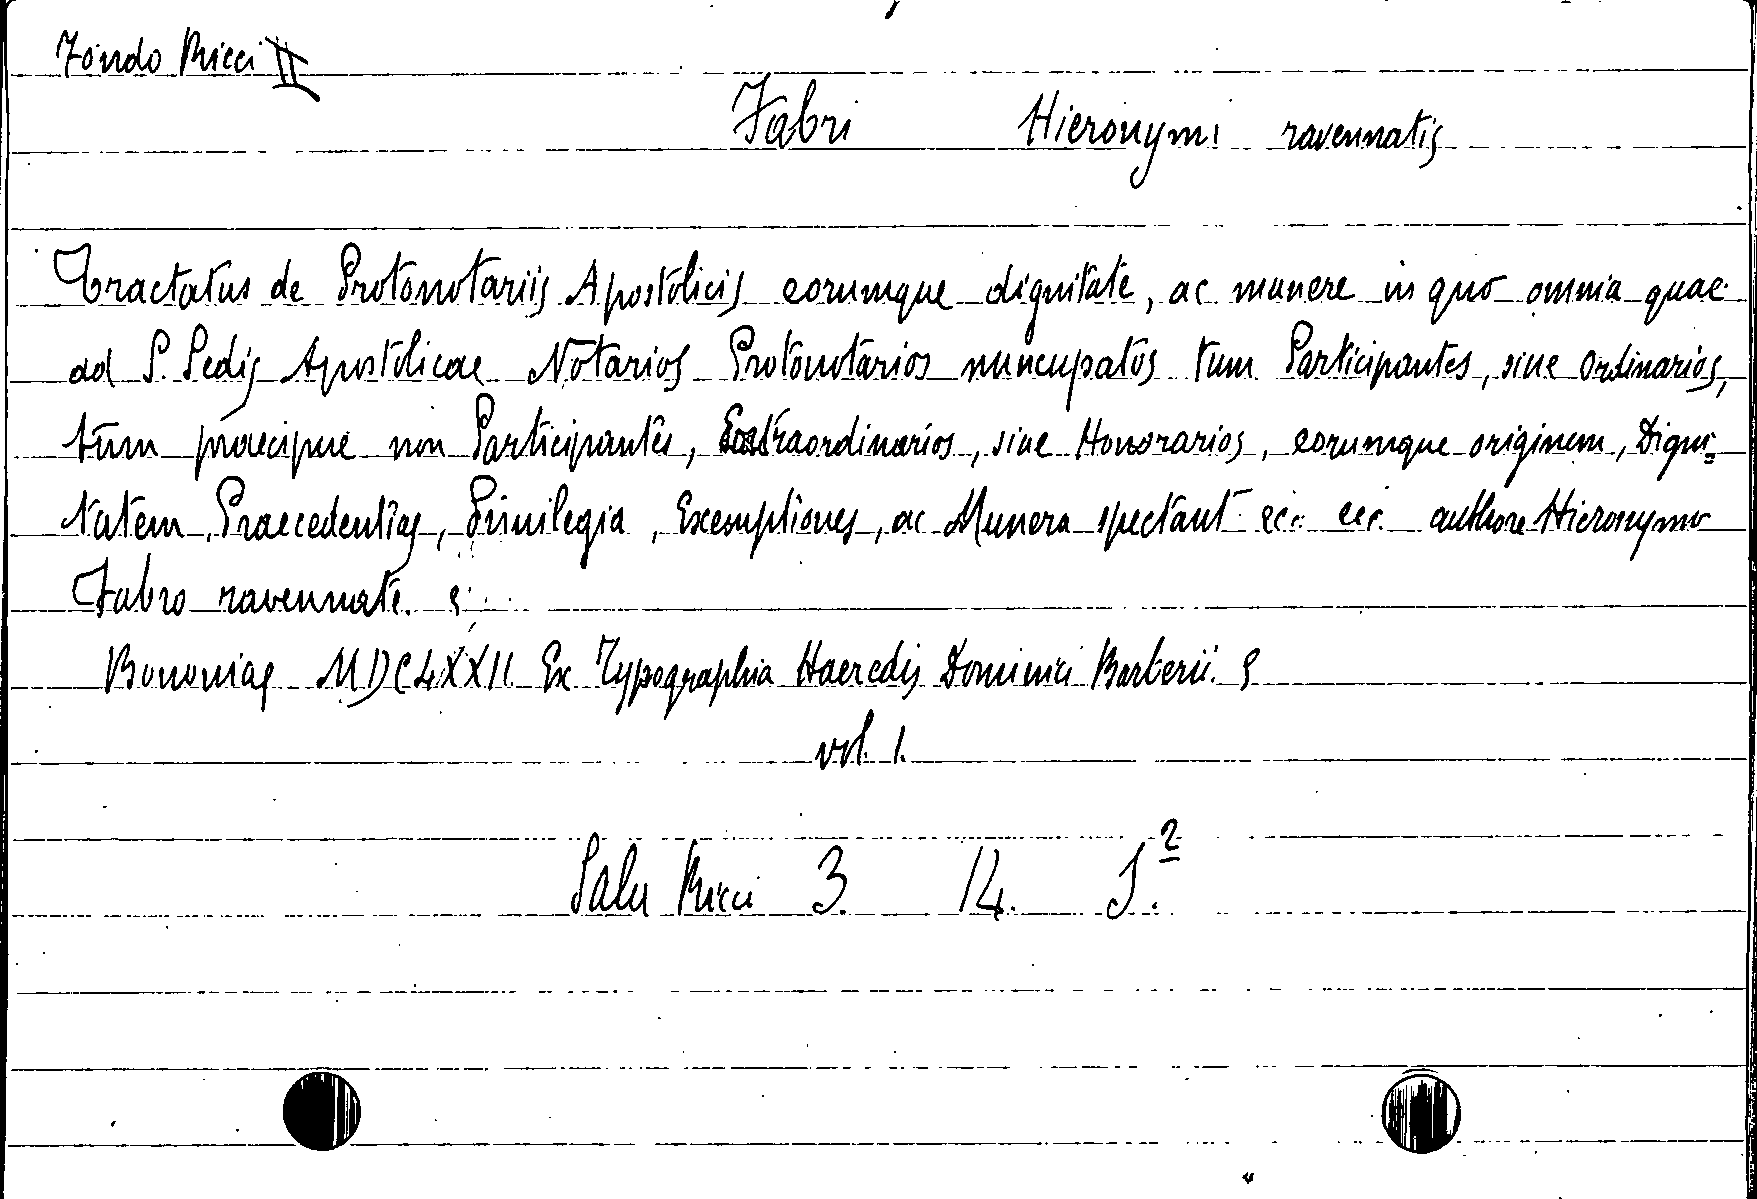 Fondo Ricci II
Fabri Hieronymi ravennatis
Tractatus de Protonotariis Apostolicis eorumque dignitate, ac munere in quo omnia quae
ad S. Sedis Apostolicae Notarios Protonotarios nuncupatos tum Participantes, sive Ordinarios,
tum praecipue non Participantes, Extraordinarios, sive Honorarios, eorumque originem, Digni=
tatem, Praecedentias, Privilegia, Exemptiones, ac Munera spectant ecc. ecc. authore Hieronymo
Fabro ravennate.
Bononiae MDCLXXII Ex Typographia Haeredis Dominici Barberii.
vol. 1.
Sala Ricci 3. 14. J.2